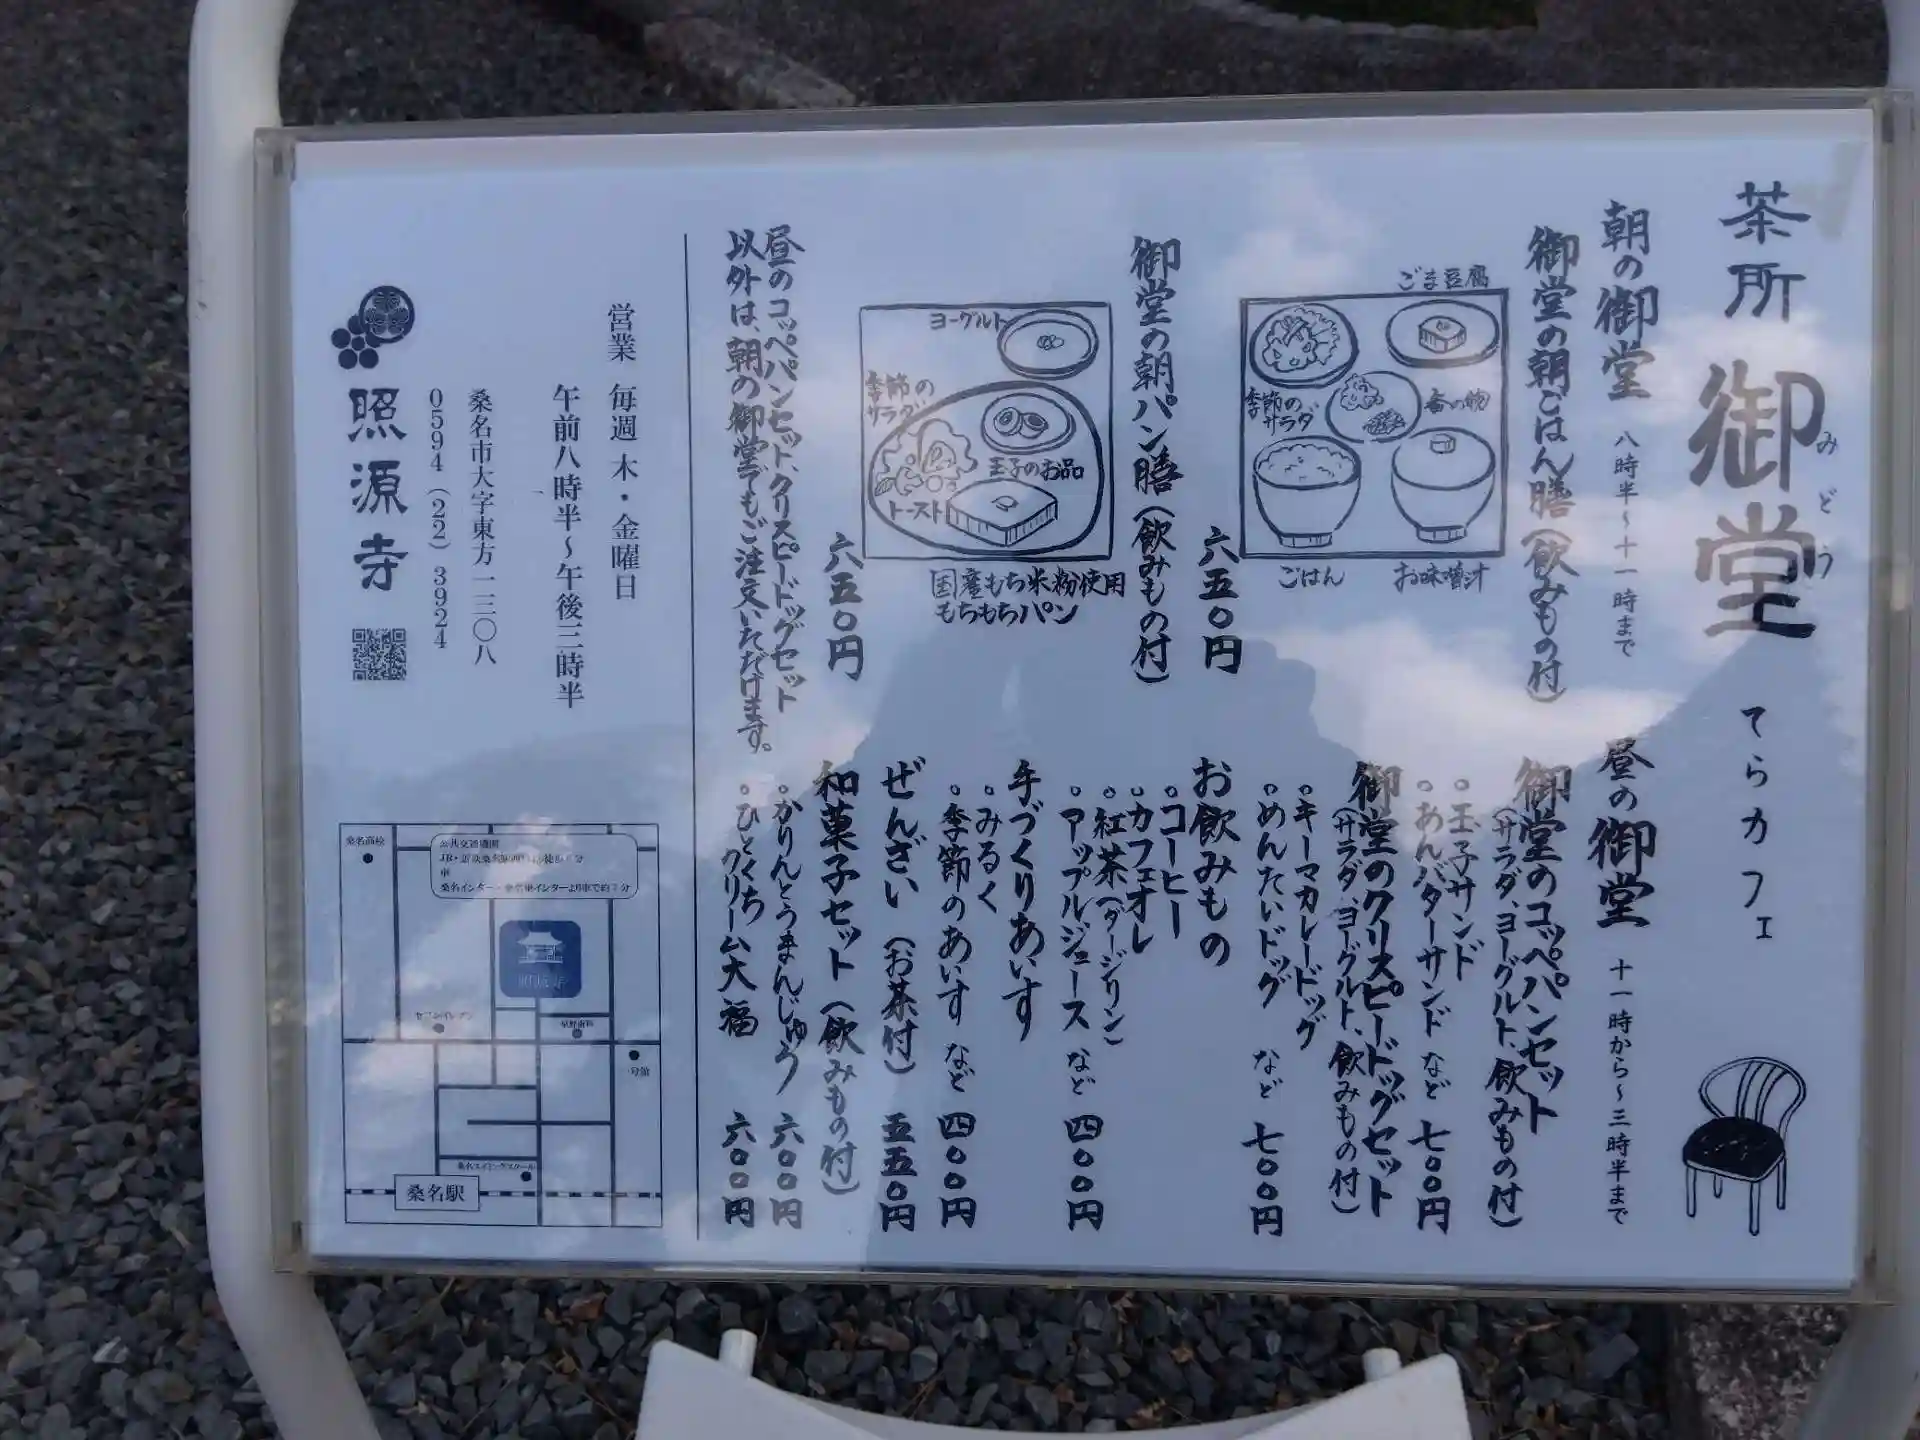 茶所 御堂 てらカフェ
みどう
朝の御堂 八時半〜十一時まで
御堂の朝ごはん膳(飲みもの付)
ごま豆腐
季節の
サラダ
香の物
ごはん
お味噌汁
六五〇円
御堂の朝パン膳(飲みもの付)
ヨーグルト
季節の
サラダ
玉子のお品
トースト
国産もち米粉使用
もちもちパン
六五〇円
昼のコッペパンセット、クリスピードッグセット
以外は、朝の御堂でもご注文いただけます。
昼の御堂 十一時から〜三時半まで
御堂のコッペパンセット
(サラダ、ヨーグルト、飲みもの付)
。玉子サンド
。あんバターサンド など 七〇〇円
御堂のクリスピードッグセット
(サラダ、ヨーグルト、飲みもの付)
。キーマカレードッグ
。めんたいドッグ など 七〇〇円
お飲みもの
。コーヒー
。カフェオレ
。紅茶(ダージリン)
。アップルジュース など 四〇〇円
手づくりあいす
。みるく
。季節のあいす など 四〇〇円
ぜんざい(お茶付) 五五〇円
和菓子セット(飲みもの付)
。かりんとうまんじゅう 六〇〇円
。ひとくちクリーム大福 六〇〇円
営業 毎週 木・金曜日
午前八時半〜午後三時半
桑名市大字東方一三〇八
0594(22)3924
照源寺
桑名高校
公共交通機関
車
セブンイレブン
桑名スイミングスクール
桑名駅